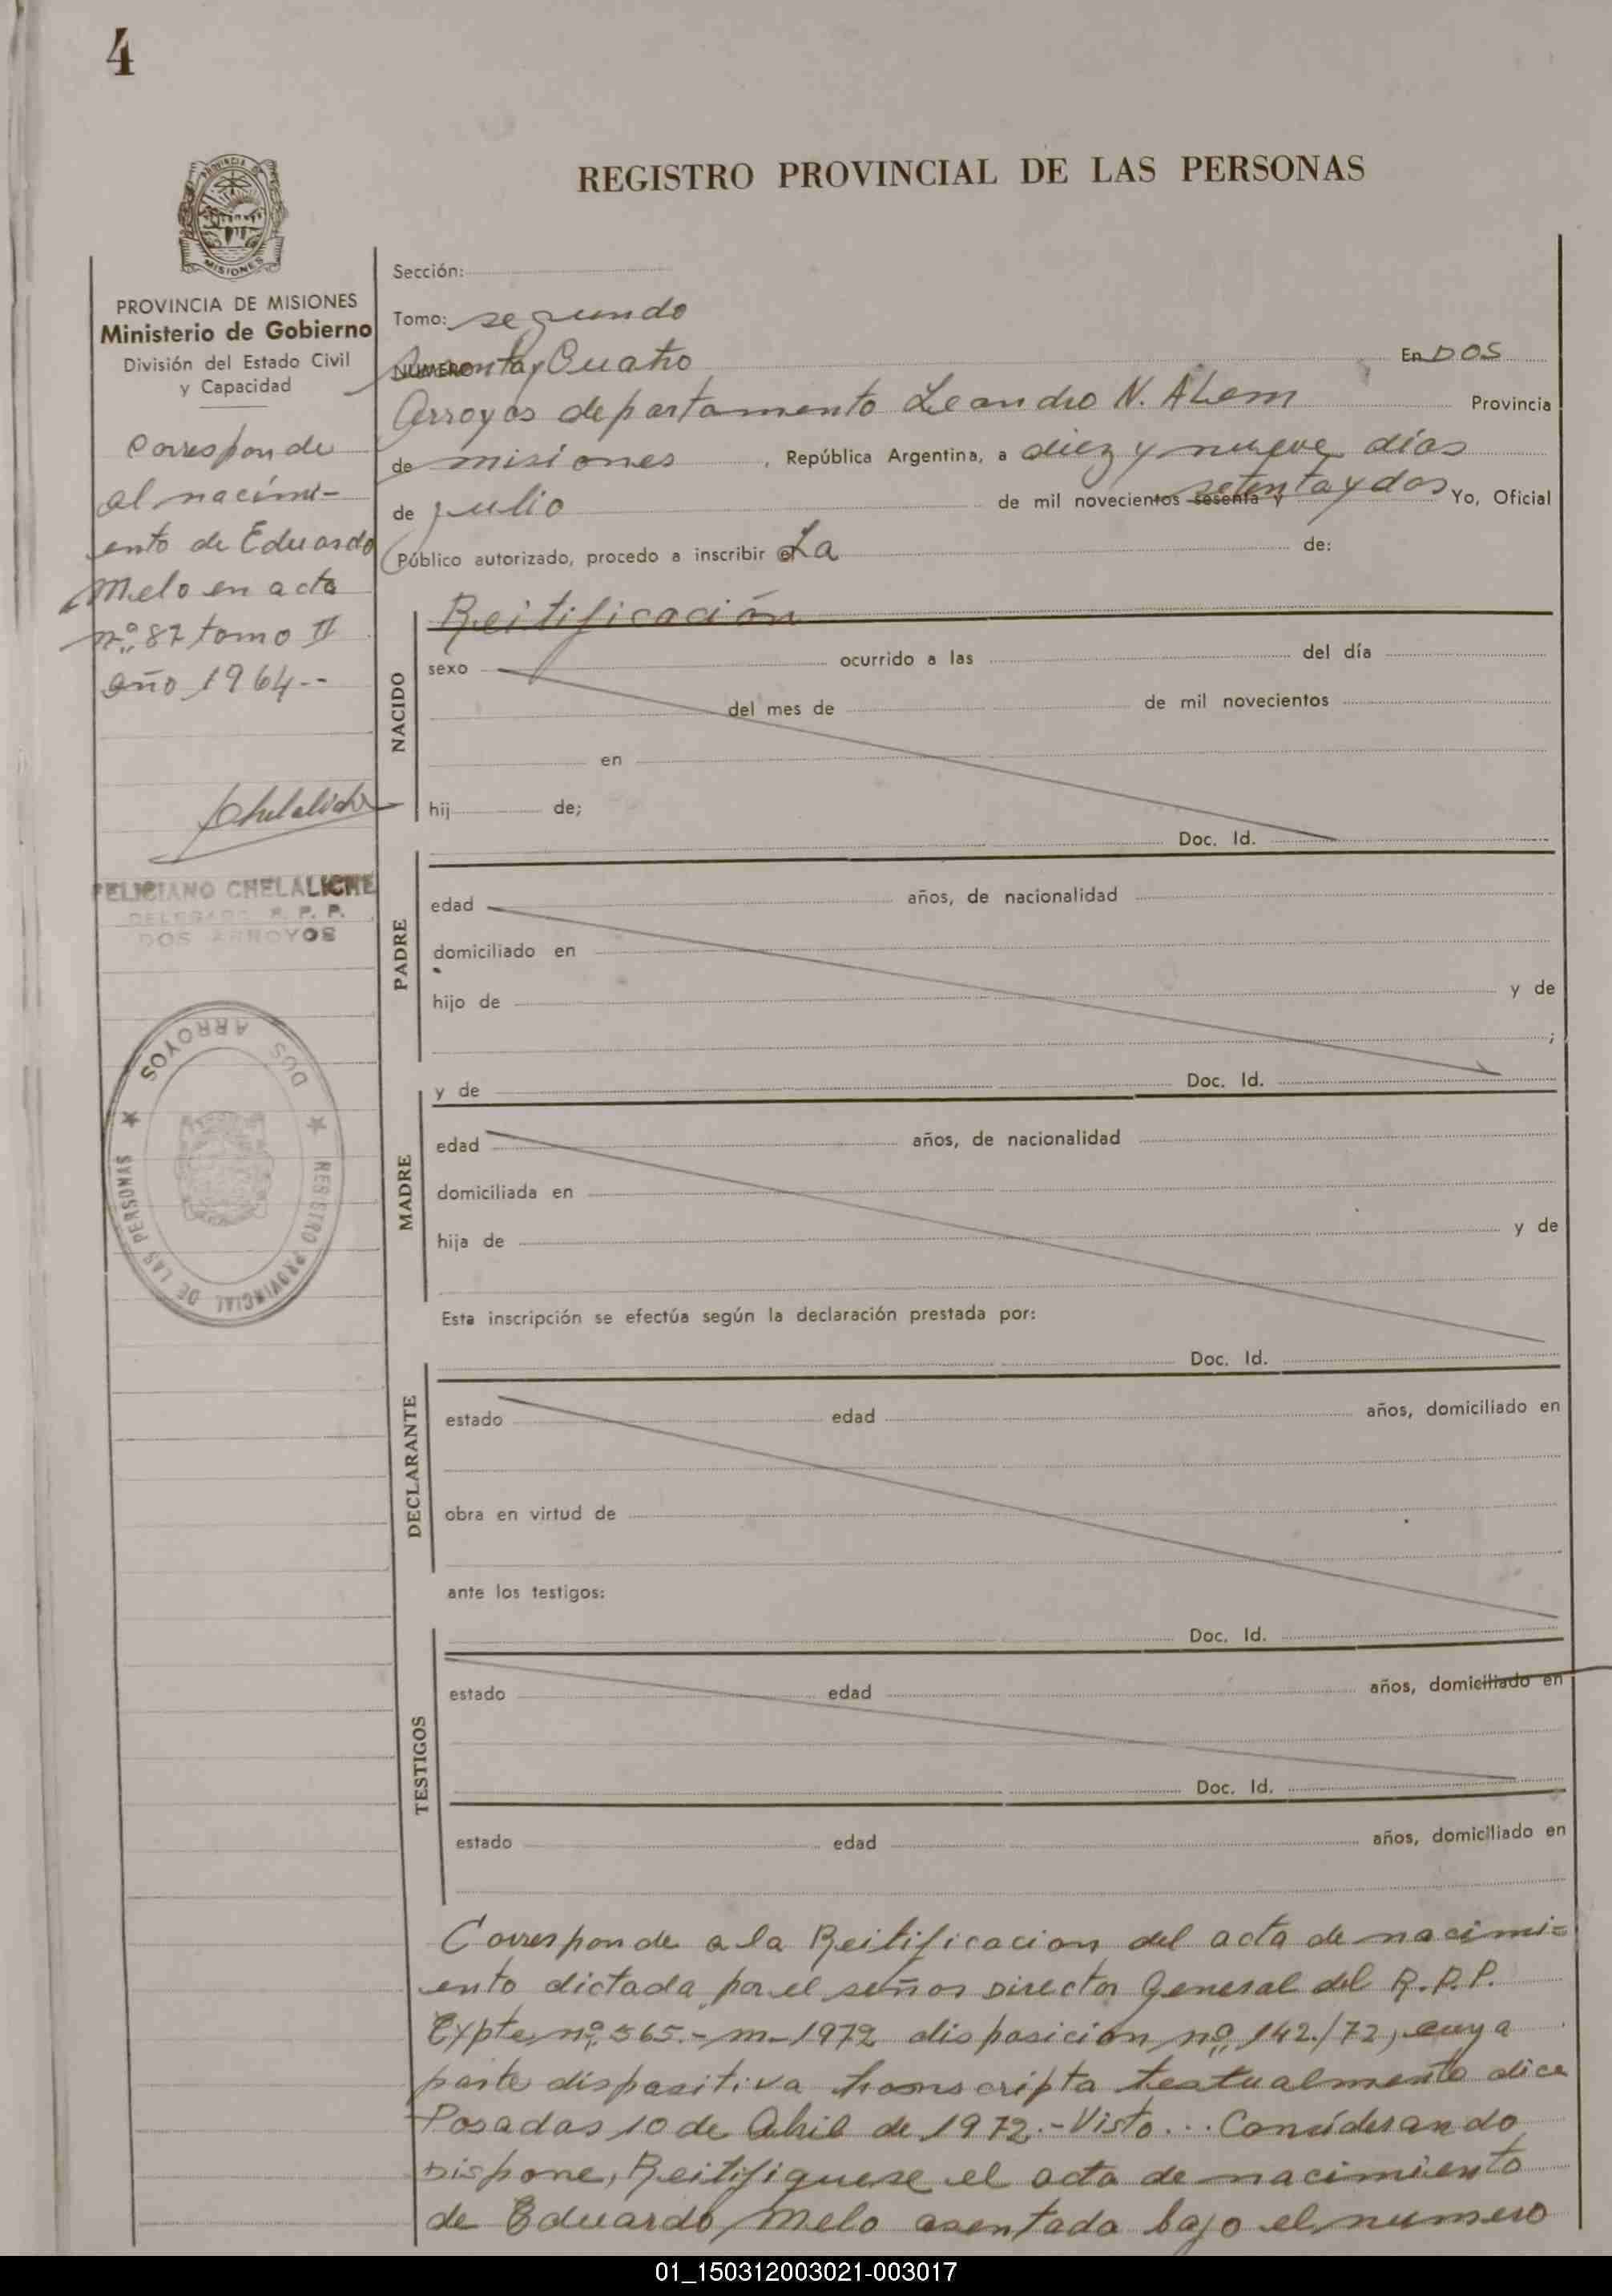 4
REGISTRO PROVINCIAL DE LAS PERSONAS
PROVINCIA DE MISIONES
MISIONES
PROVINCIA DE MISIONES
Ministerio de Gobierno
División del Estado Civil
y Capacidad
Corresponde
al nacimi-
ento de Eduardo
Melo en acta
nº 87 tomo II
año 1964--
Chelaliche
FELICIANO CHELALICHE
DELEGADO R. P. P.
DOS ARROYOS
DOS ARROYOS ★ REGISTRO PROVINCIAL DE LAS PERSONAS ★
Sección:
Tomo: segundo
NUMERO y Cuatro En DOS
Arroyos departamento Leandro N. Alem Provincia
de misiones , República Argentina, a diez y nueve días
de julio de mil novecientos sesenta y setenta y dos Yo, Oficial
Público autorizado, procedo a inscribir el La de:
Reitificación
NACIDO
sexo ocurrido a las del día
del mes de de mil novecientos
en
hij de;
Doc. Id.
PADRE
edad años, de nacionalidad
domiciliado en
hijo de y de
;
y de Doc. Id.
MADRE
edad años, de nacionalidad
domiciliada en
hija de y de
Esta inscripción se efectúa según la declaración prestada por:
Doc. Id.
DECLARANTE
estado edad años, domiciliado en
obra en virtud de
ante los testigos:
Doc. Id.
TESTIGOS
estado edad años, domiciliado en
Doc. Id.
estado edad años, domiciliado en
Corresponde a la Reitificacion del acta de nacimi=
ento dictada por el señor Director General del R.P.P.
Expte nº 565.- m-1972 disposicion nº 142./72, cuya
parte dispositiva transcripta textualmente dice
Posadas 10 de Abril de 1972.- Visto... Considerando
Dispone, Reitifiquese el acta de nacimiento
de Eduardo Melo asentada bajo el numero
01_150312003021-003017